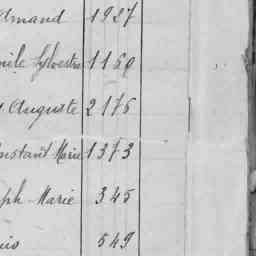 Amand 1927
mile Sylvestre 1169
Auguste 2175
nstant Marie 1373
ph-Marie 345
uis 549